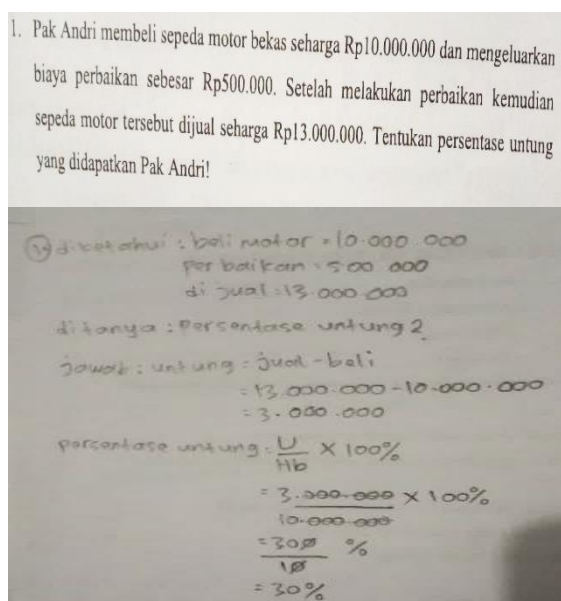 1. Pak Andri membeli sepeda motor bekas seharga Rp10.000.000 dan mengeluarkan
biaya perbaikan sebesar Rp500.000. Setelah melakukan perbaikan kemudian
sepeda motor tersebut dijual seharga Rp13.000.000. Tentukan persentase untung
yang didapatkan Pak Andri!
1. diketahui : beli motor = 10.000.000
perbaikan = 500 000
di jual = 13.000.000
ditanya : Persentase untung 2
jawab : untung = jual - beli
= 13.000.000 - 10.000.000
= 3.000.000
persentase untung = U/Hb × 100%
= 3.000.000/10.000.000 × 100%
= 300/10 %
= 30%